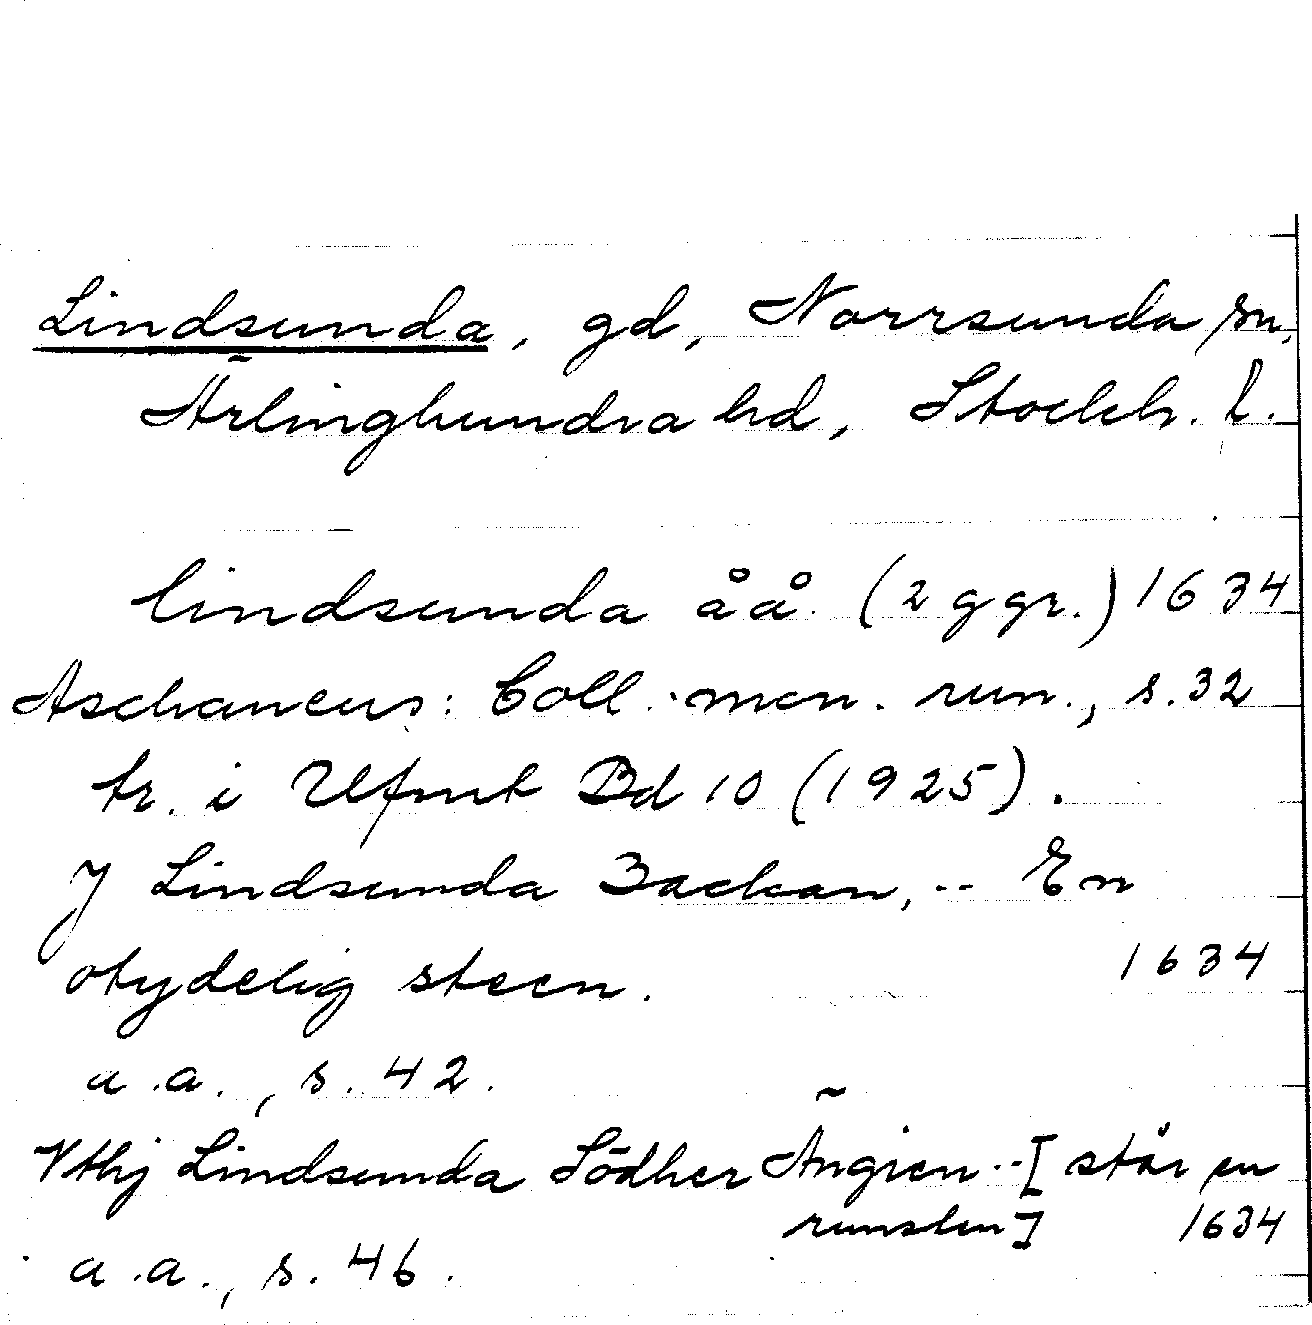 Lindsunda, gd, Norrsunda sn,
Ärlinghundra hd, Stockh. l.
lindsunda åå (2 ggr.) 1634
Aschaneus: Coll. mon. run., s. 32
tr. i Ufmt Bd 10 (1925).
J Lindsunda Backan, -- En
otydelig steen. 1634
a.a., s. 42.
Vthj Lindsunda Södher Ängien --[står en
runsten] 1634
a.a., s. 46.